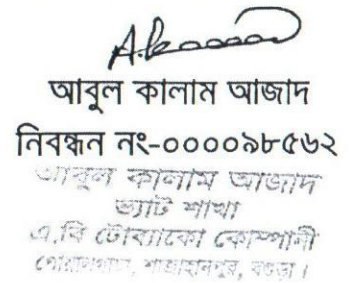 আবুল কালাম আজাদ
নিবন্ধন নং-০০০০৯৮৫৬২
আবুল কালাম আজাদ
ভ্যাট শাখা
এ.বি টোব্যাকো কোম্পানী
শাজাহানপুর, বগুড়া।